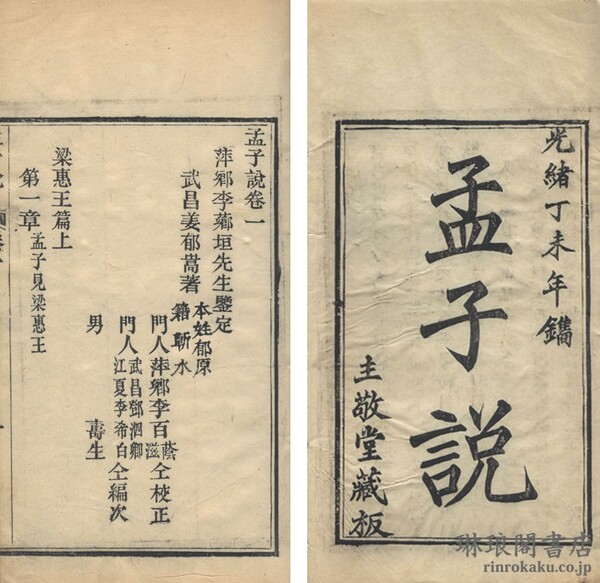 光緒丁未年鐫
孟子說
主敬堂藏板
孟子說卷一
萍鄉李薌垣先生鑒定
武昌姜郁嵩著
本姓郁原
籍蘄水
門人萍鄉李百蔭滋仝校正
門人武昌鄧泗卿江夏李希白仝編次
男壽生
梁惠王篇上
第一章孟子見梁惠王
琳琅閣書店
rinrokaku.co.jp